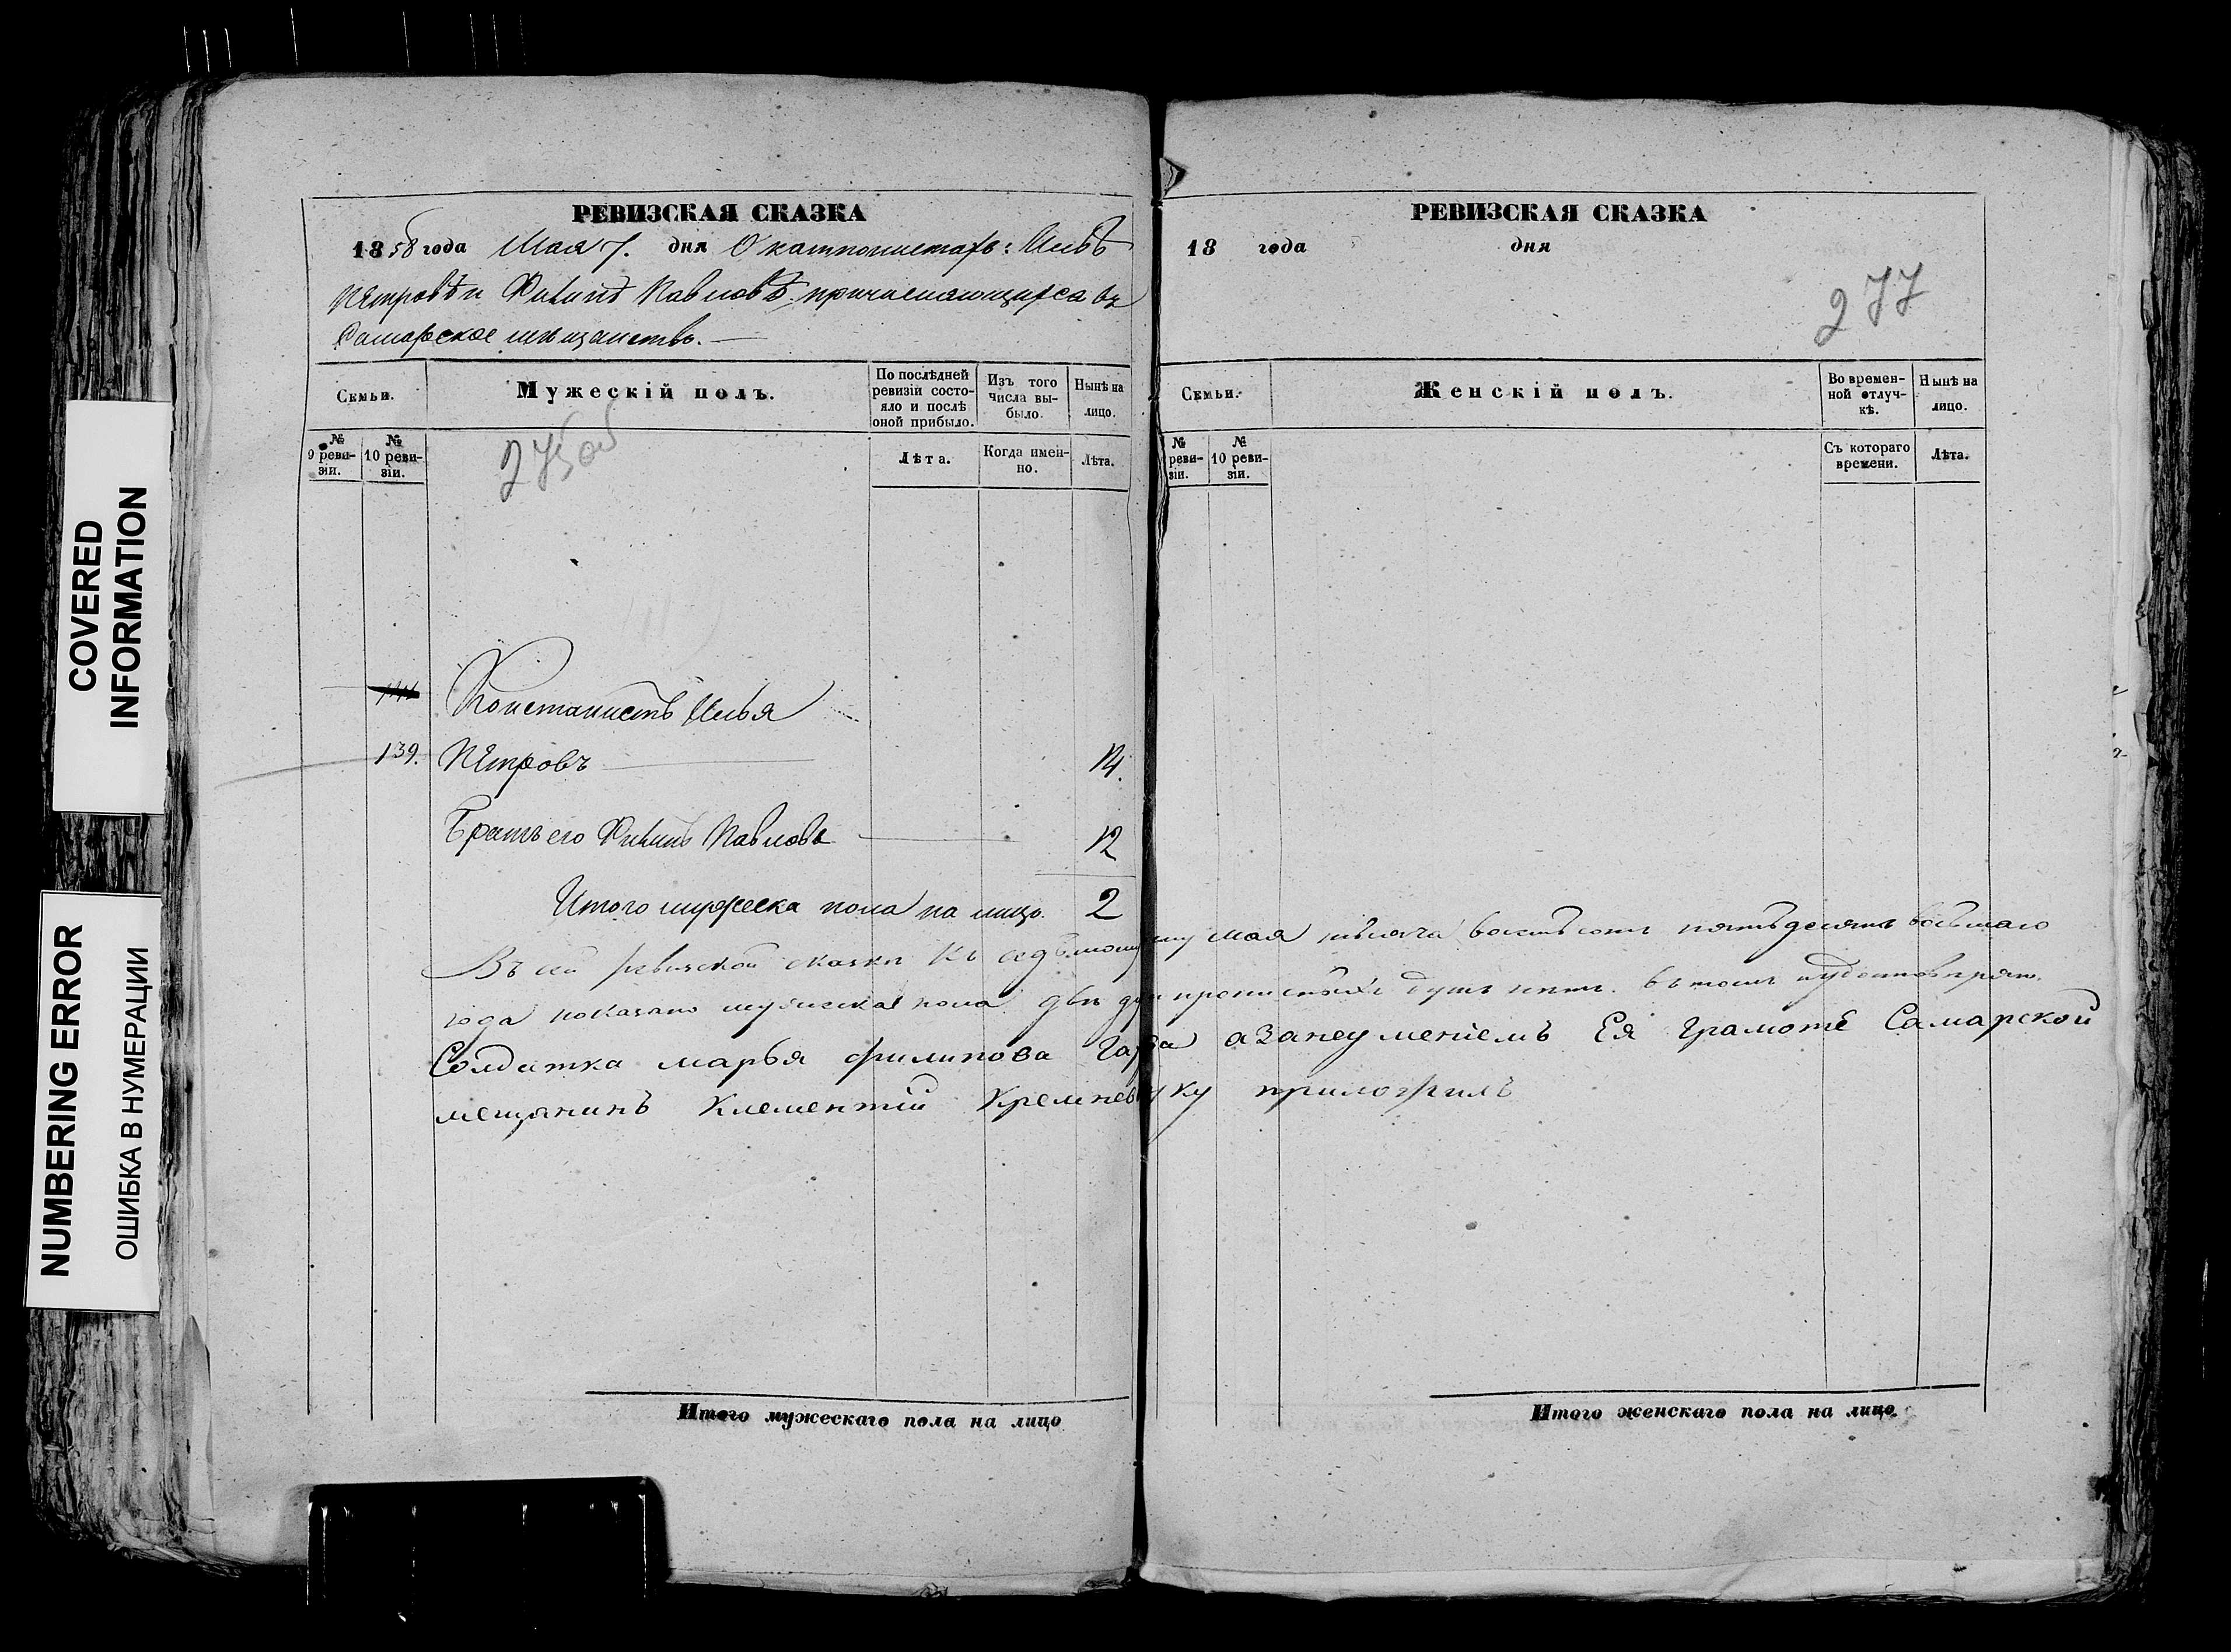 COVERED
INFORMATION
NUMBERING ERROR
ОШИБКА В НУМЕРАЦИИ
РЕВИЗСКАЯ СКАЗКА
1858 года Мая 7. дня О кантонистахъ: Ильѣ
Петровѣ и Филипѣ Павловѣ, причисляющихся въ
Самарское мѣщанство.
Семьи.
Мужескій полъ.
По послѣдней ревизіи состояло и послѣ оной прибыло.
Изъ того числа выбыло.
Нынѣ на лицо.
№ 9 ревизіи.
№ 10 ревизіи.
275об
Лѣта.
Когда именно.
Лѣта.
Контанистъ Илья
139. Петровъ 14.
Братъ его Филипъ Павловъ 12
Итого мужеска пола на лицо. 2
РЕВИЗСКАЯ СКАЗКА
18 года дня
277
Семьи.
Женскій полъ.
Во временной отлучкѣ.
Нынѣ на лицо.
№ ревизіи.
№ 10 ревизіи.
Съ котораго времени.
Лѣта.
Въ сей ревизской сказки къ седьмому мая тысяча восемьсотъ пятьдесятъ восьмаго
года показано мужеска пола двѣ прописныхъ душъ нѣтъ. въ томъ
Солдатка марья филипова азанеумениемъ Ея грамоте Самарской
мещянинъ Клементий Кремнев руку приложилъ
Итого мужескаго пола на лицо
Итого женскаго пола на лицо